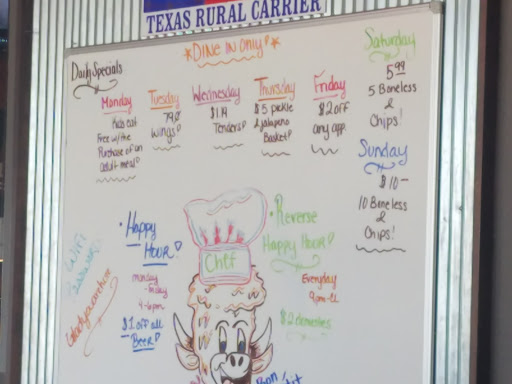 TEXAS RURAL CARRIER
*DINE IN ONLY!*
Daily Specials
Monday
Kids eat
Free w/the
Purchase of an
adult meal!
Tuesday
79¢
Wings!
Wednesday
$1.19
Tenders!
Thursday
$5 pickle
& jalapeno
Basket!
Friday
$2 off
any app.
Saturday
5.99
5 Boneless
&
Chips!
Sunday
$10-
10 Boneless
&
Chips!
• Happy
Hour!
monday
-Friday
4-6pm
$1 off all
Beer!
Chef
• Reverse
Happy Hour!
Everyday
9pm-CL
WiFi